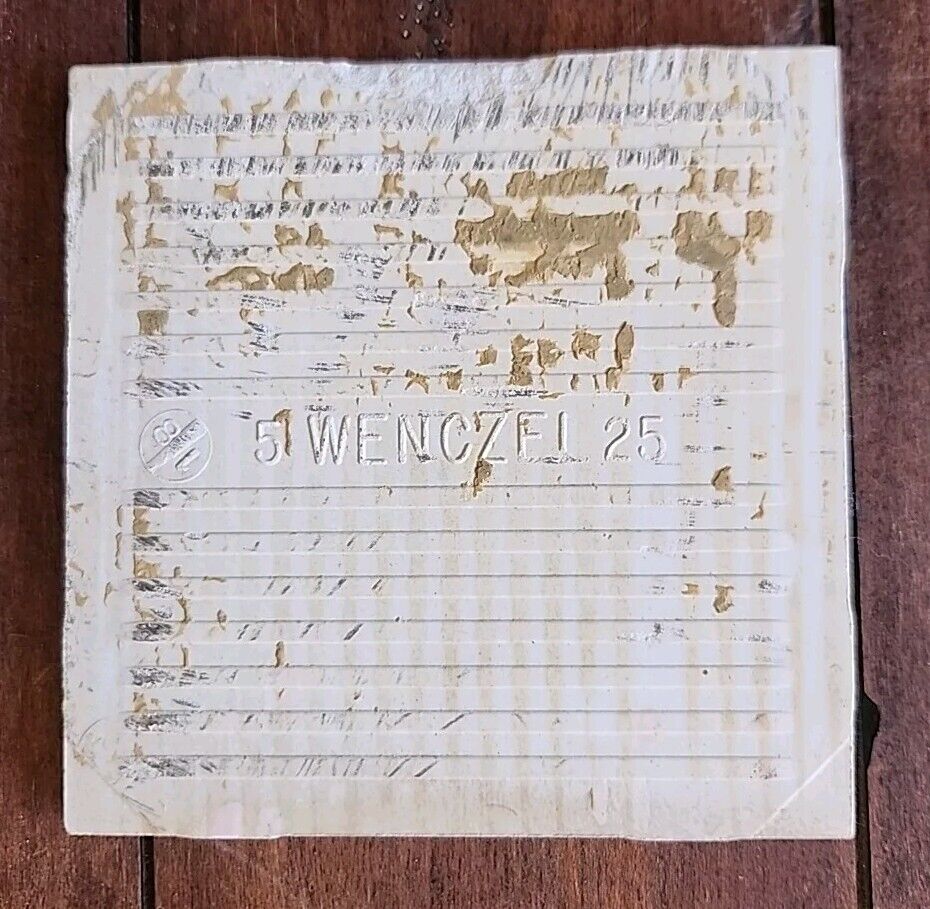 5 WENCZEL 25